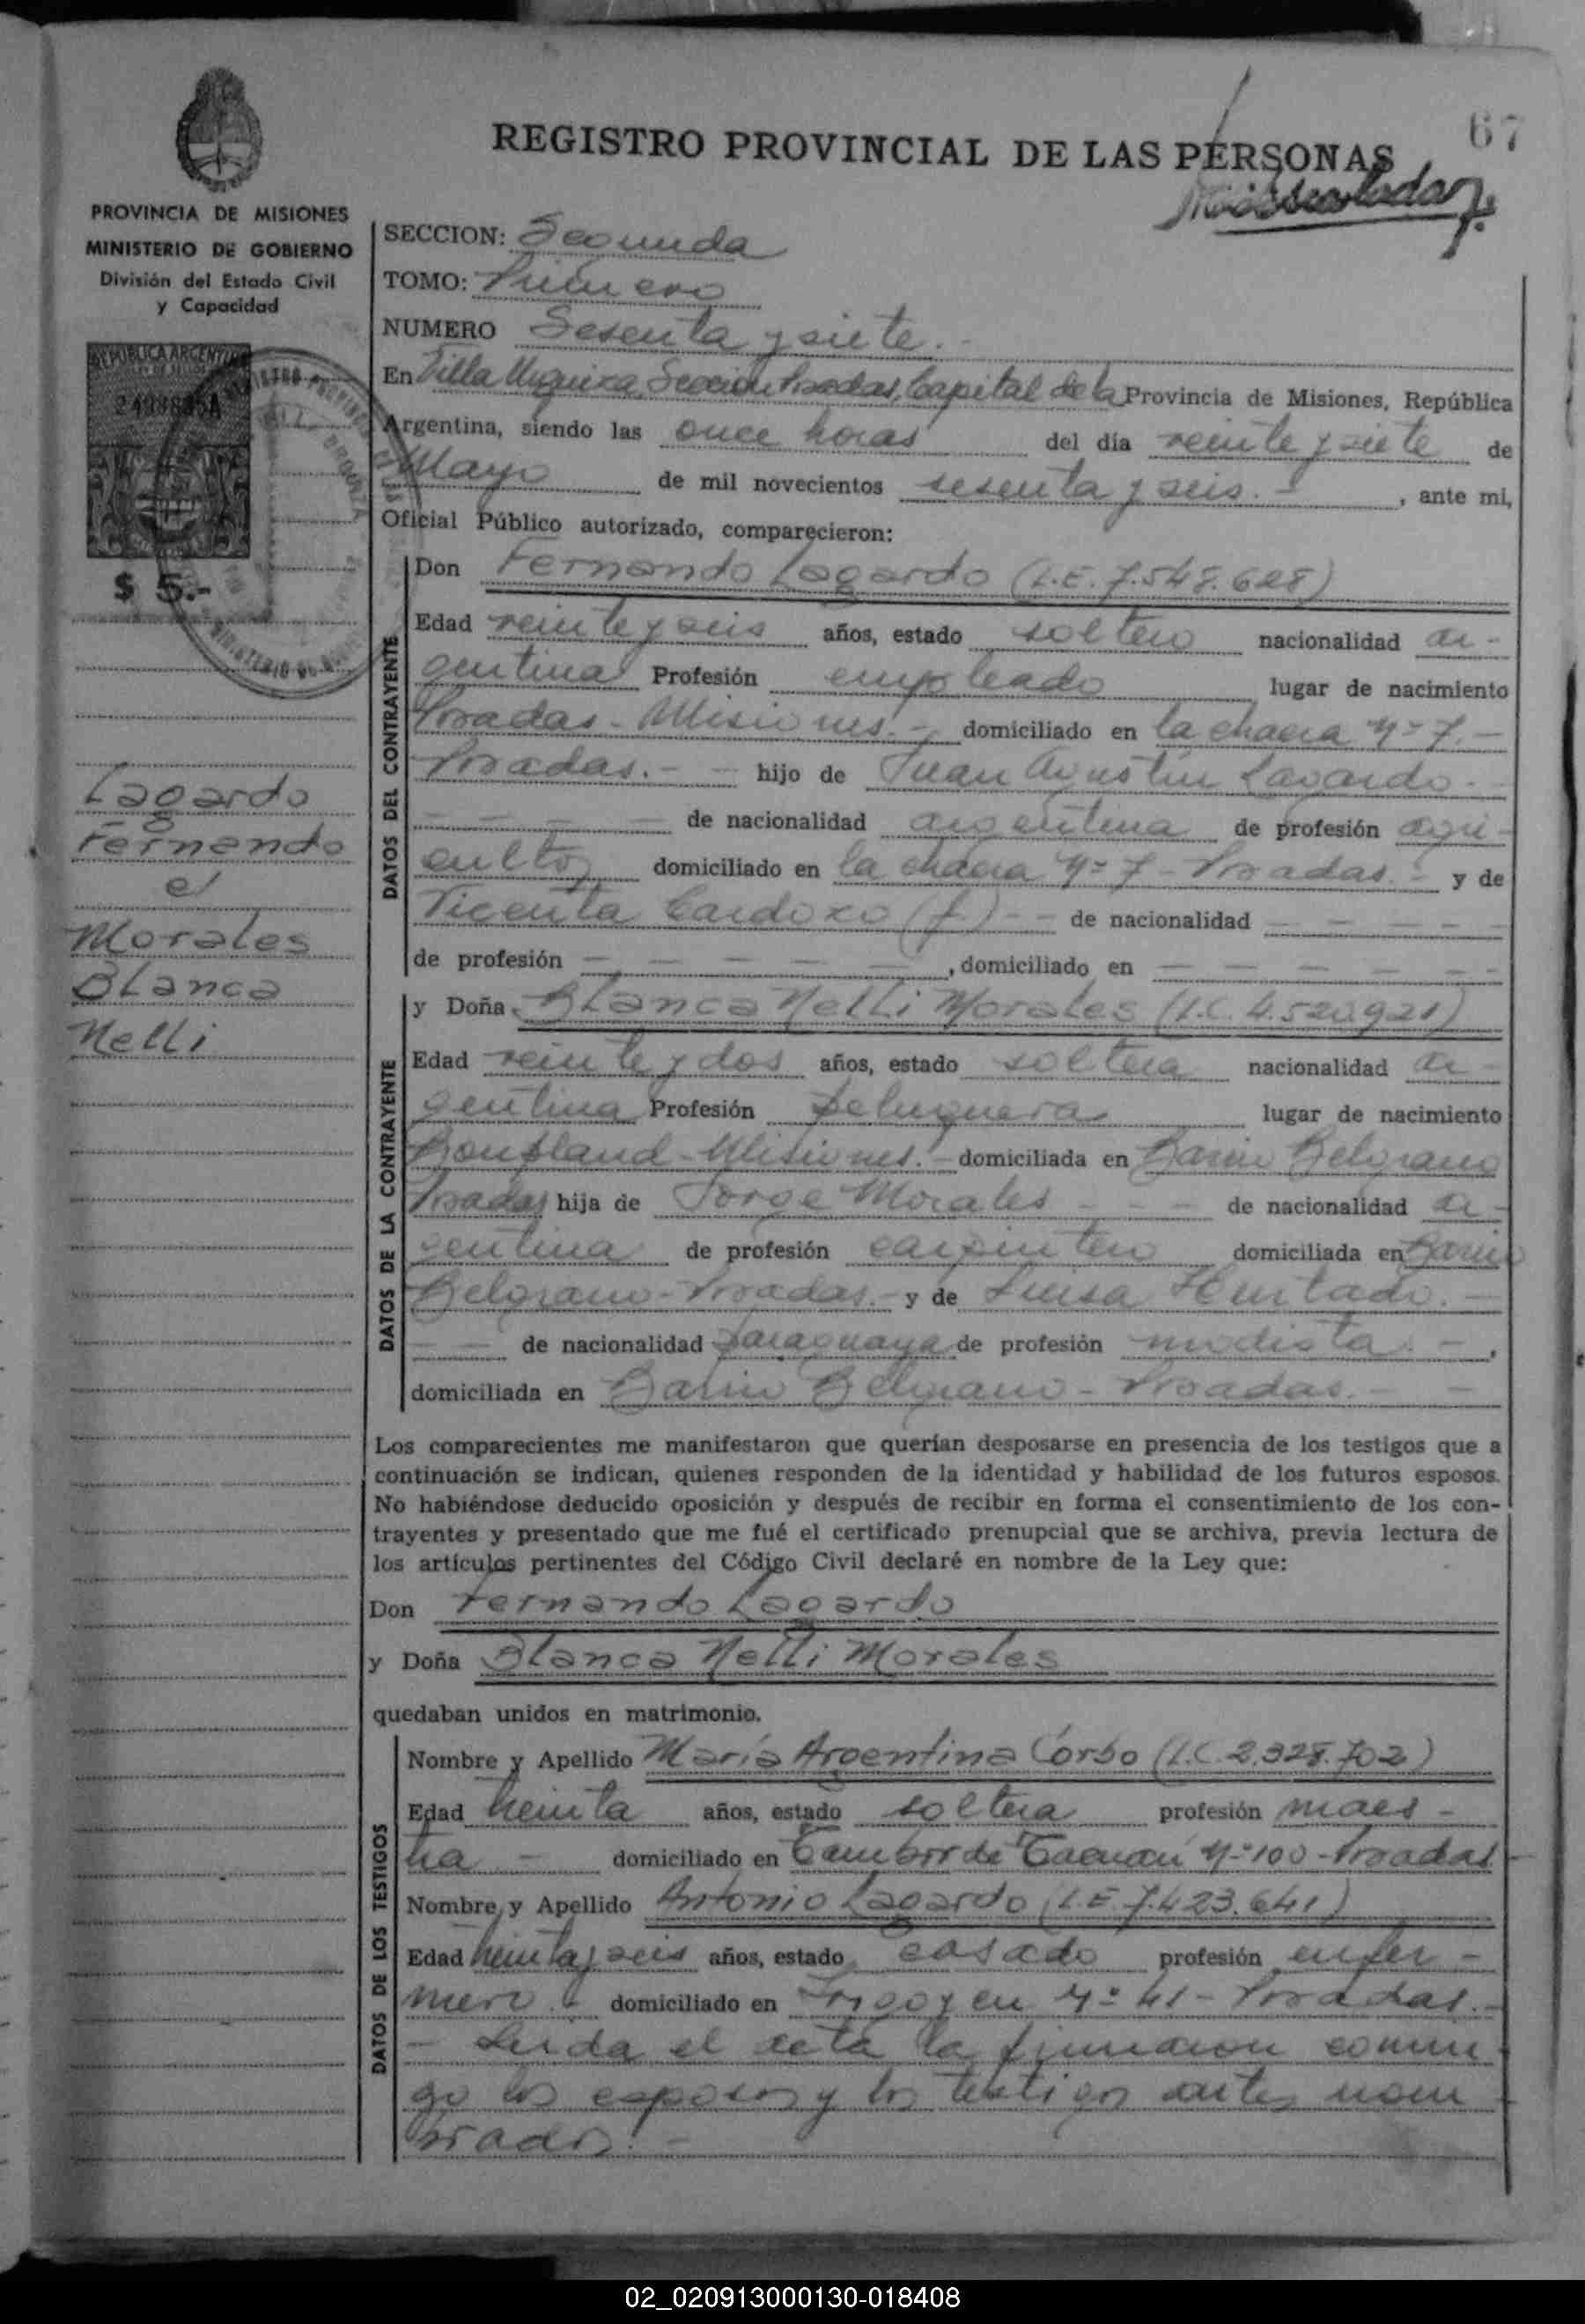 67
REGISTRO PROVINCIAL DE LAS PERSONAS
PROVINCIA DE MISIONES
MINISTERIO DE GOBIERNO
División del Estado Civil
y Capacidad
REPUBLICA ARGENTINA
$ 5.-
Lagardo
Fernando
e/
Morales
Blanca
Nelli
SECCION: Segunda
TOMO: Primero
NUMERO Sesenta y siete.-
En Villa Urquiza, Sección Posadas, Capital de la Provincia de Misiones, República
Argentina, siendo las once horas del día veinte y siete de
Mayo de mil novecientos sesenta y seis.- , ante mi,
Oficial Público autorizado, comparecieron:
DATOS DEL CONTRAYENTE
Don Fernando Lagardo (L.E. 7.548.628)
Edad veinte y seis años, estado soltero nacionalidad ar-
gentina Profesión empleado lugar de nacimiento
Posadas - Misiones.- domiciliado en la chacra Nº 7.-
Posadas.- - hijo de Juan Agustín Lagardo.-
- - - - de nacionalidad argentina de profesión agri-
cultor domiciliado en la chacra Nº 7 - Posadas.- y de
Vicenta Cardozo (f.) - - de nacionalidad - - - -
de profesión - - - - - , domiciliado en - - - - - -
DATOS DE LA CONTRAYENTE
y Doña Blanca Nelli Morales (L.C. 4.520.921)
Edad veinte y dos años, estado soltera nacionalidad ar-
gentina Profesión peluquera lugar de nacimiento
Bonpland - Misiones.- domiciliada en Barrio Belgrano
Posadas hija de Jorge Morales - - - de nacionalidad ar-
gentina de profesión carpintero domiciliada en Barrio
Belgrano - Posadas.- y de Luisa Hurtado.-
- - de nacionalidad paraguaya de profesión modista.- ,
domiciliada en Barrio Belgrano - Posadas.- -
Los comparecientes me manifestaron que querían desposarse en presencia de los testigos que a
continuación se indican, quienes responden de la identidad y habilidad de los futuros esposos.
No habiéndose deducido oposición y después de recibir en forma el consentimiento de los con-
trayentes y presentado que me fué el certificado prenupcial que se archiva, previa lectura de
los artículos pertinentes del Código Civil declaré en nombre de la Ley que:
Don Fernando Lagardo
y Doña Blanca Nelli Morales
quedaban unidos en matrimonio.
DATOS DE LOS TESTIGOS
Nombre y Apellido María Argentina Corbo (L.C. 2.328.702)
Edad treinta años, estado soltera profesión maes-
tra - domiciliado en Tambor de Tacuarí Nº 100 - Posadas
Nombre y Apellido Antonio Lagardo (L.E. 7.423.641)
Edad treinta y seis años, estado casado profesión enfer-
mero.- domiciliado en Irigoyen Nº 41 - Posadas.-
- Leida el acta la firmaron conmi-
go los esposos y los testigos antes nom-
brados.-
02_020913000130-018408